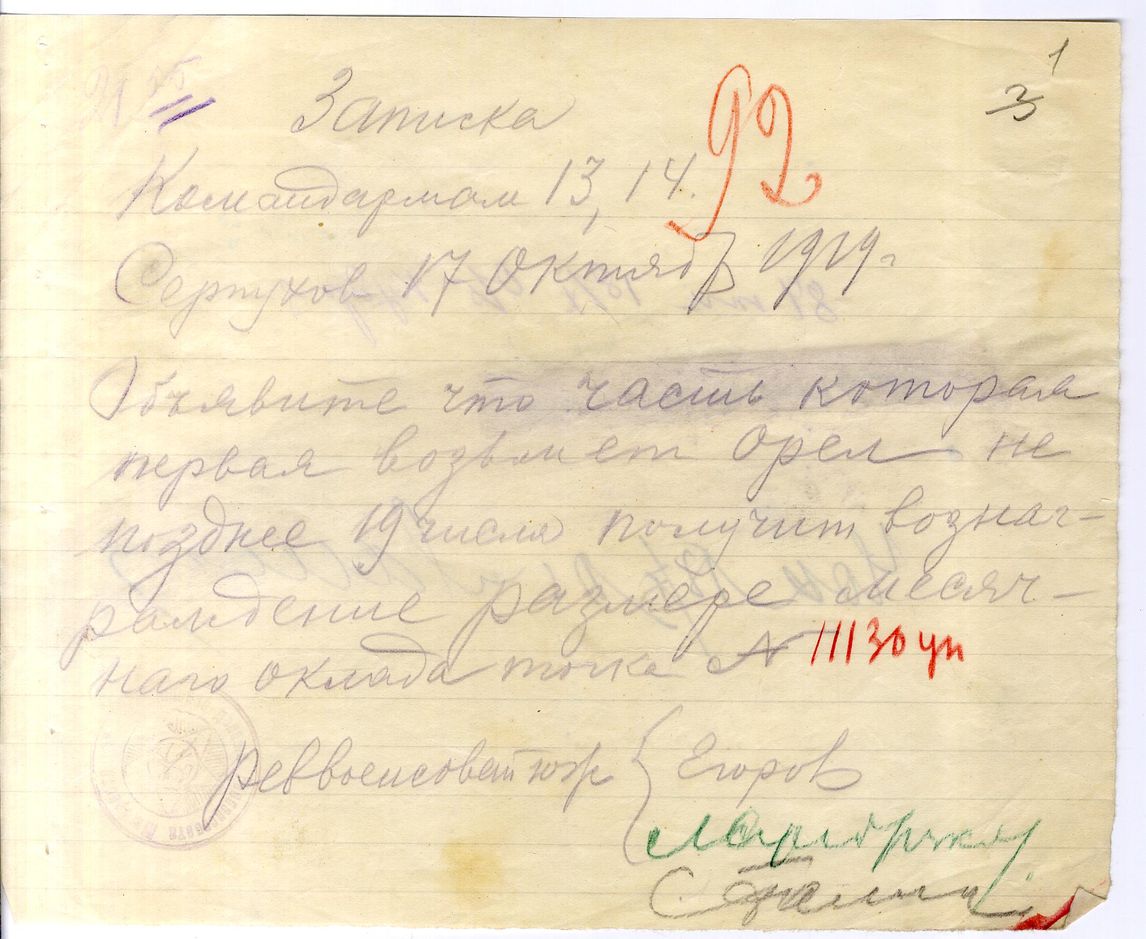 1
3
55
Записка
92
Командармам 13, 14.
Серпухов 17 Октября 1919г
Объявите что часть которая
первая возьмет Орел не
позднее 19 числа получит вознаг-
раждение размере месяч-
наго оклада точка № 11130 уп
Реввоенсовет юж
Егоров
Сталин